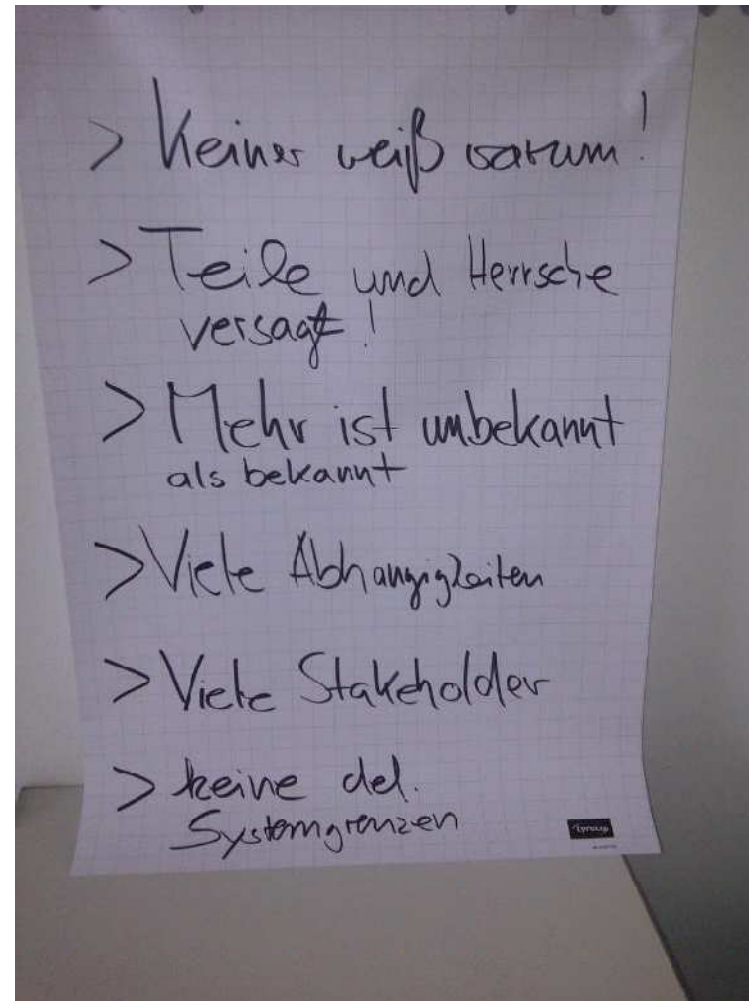 > Keiner weiß warum!
> Teile und Herrsche
versagt!
> Mehr ist unbekannt
als bekannt
> Viele Abhangigkeiten
> Viele Stakeholder
> keine def.
Systemgrenzen